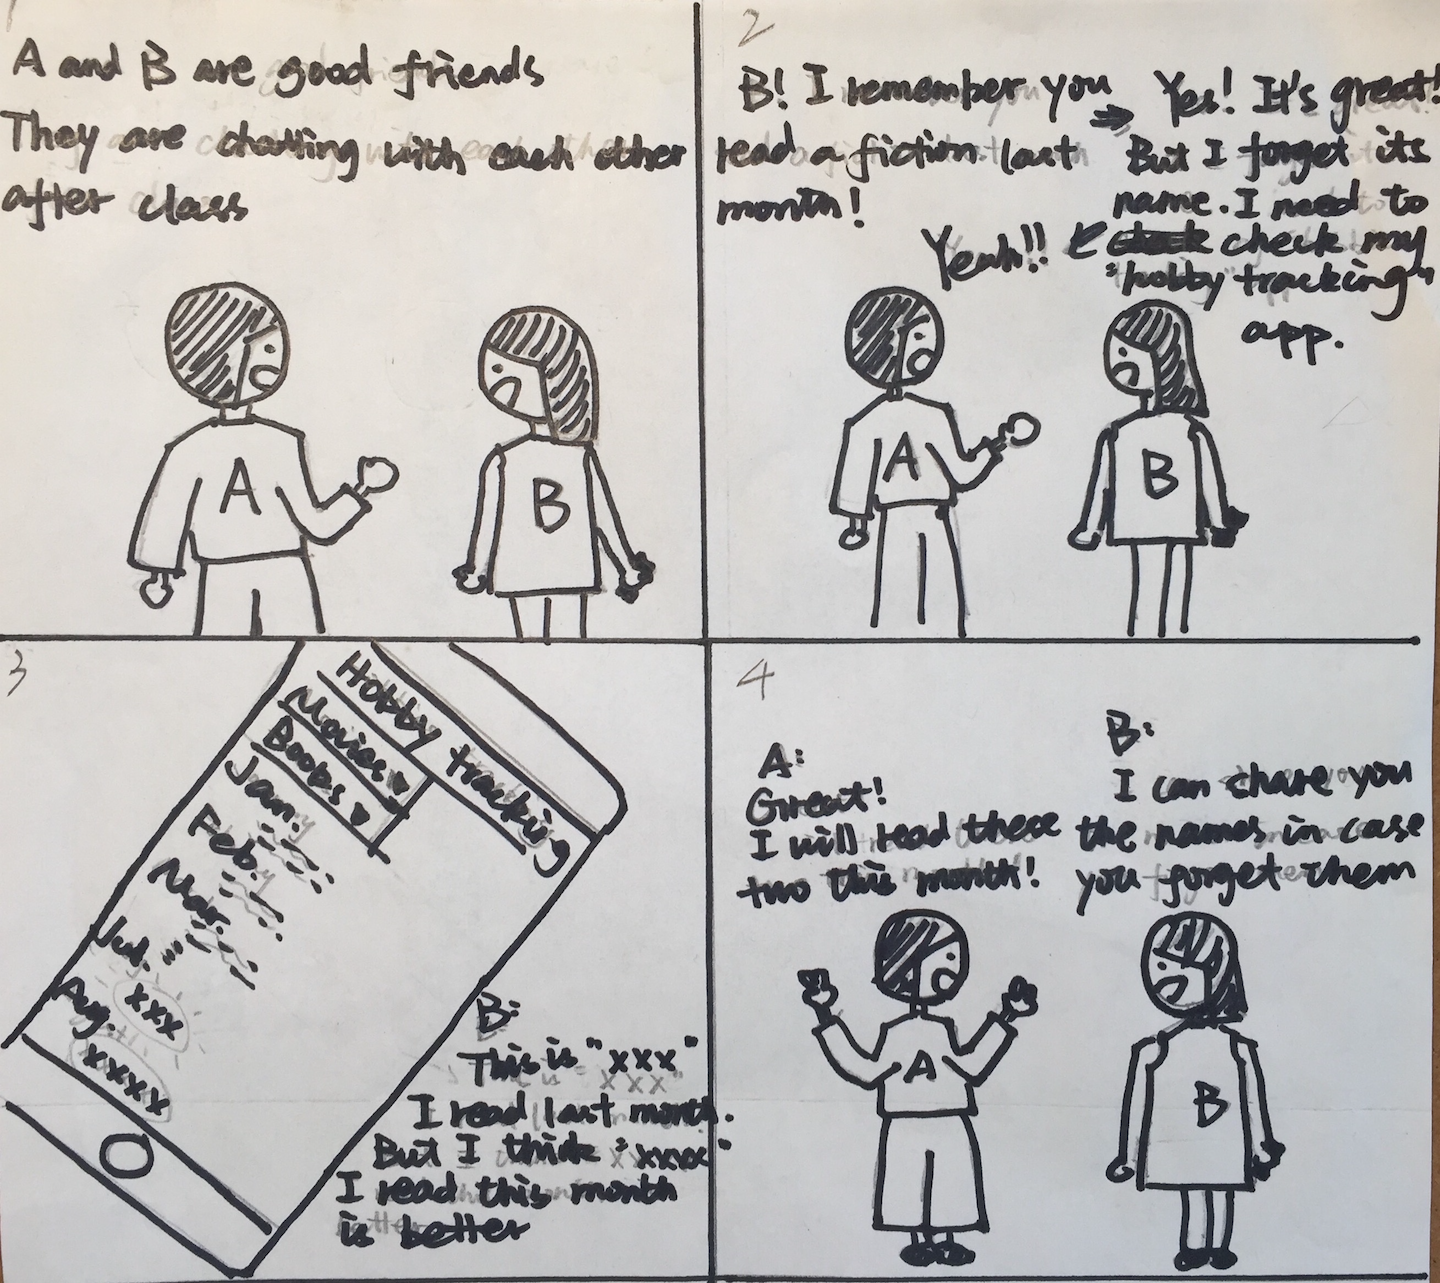 1
A and B are good friends
They are chatting with each other
after class
2
B! I remember you
read a fiction last
month!
Yes! It's great!
But I forget its
name. I need to
check my
"hobby tracking"
app.
Yeah!!
A
B
A
B
3
Hobby tracking
Movies
Books
Jan.
Feb.
Mar.
Jul.
xxx
Aug.
xxxx
B:
This is "xxx"
I read last month.
But I think "xxxx"
I read this month
is better
4
A:
Great!
I will read these
two this month!
B:
I can share you
the names in case
you forget them
A
B